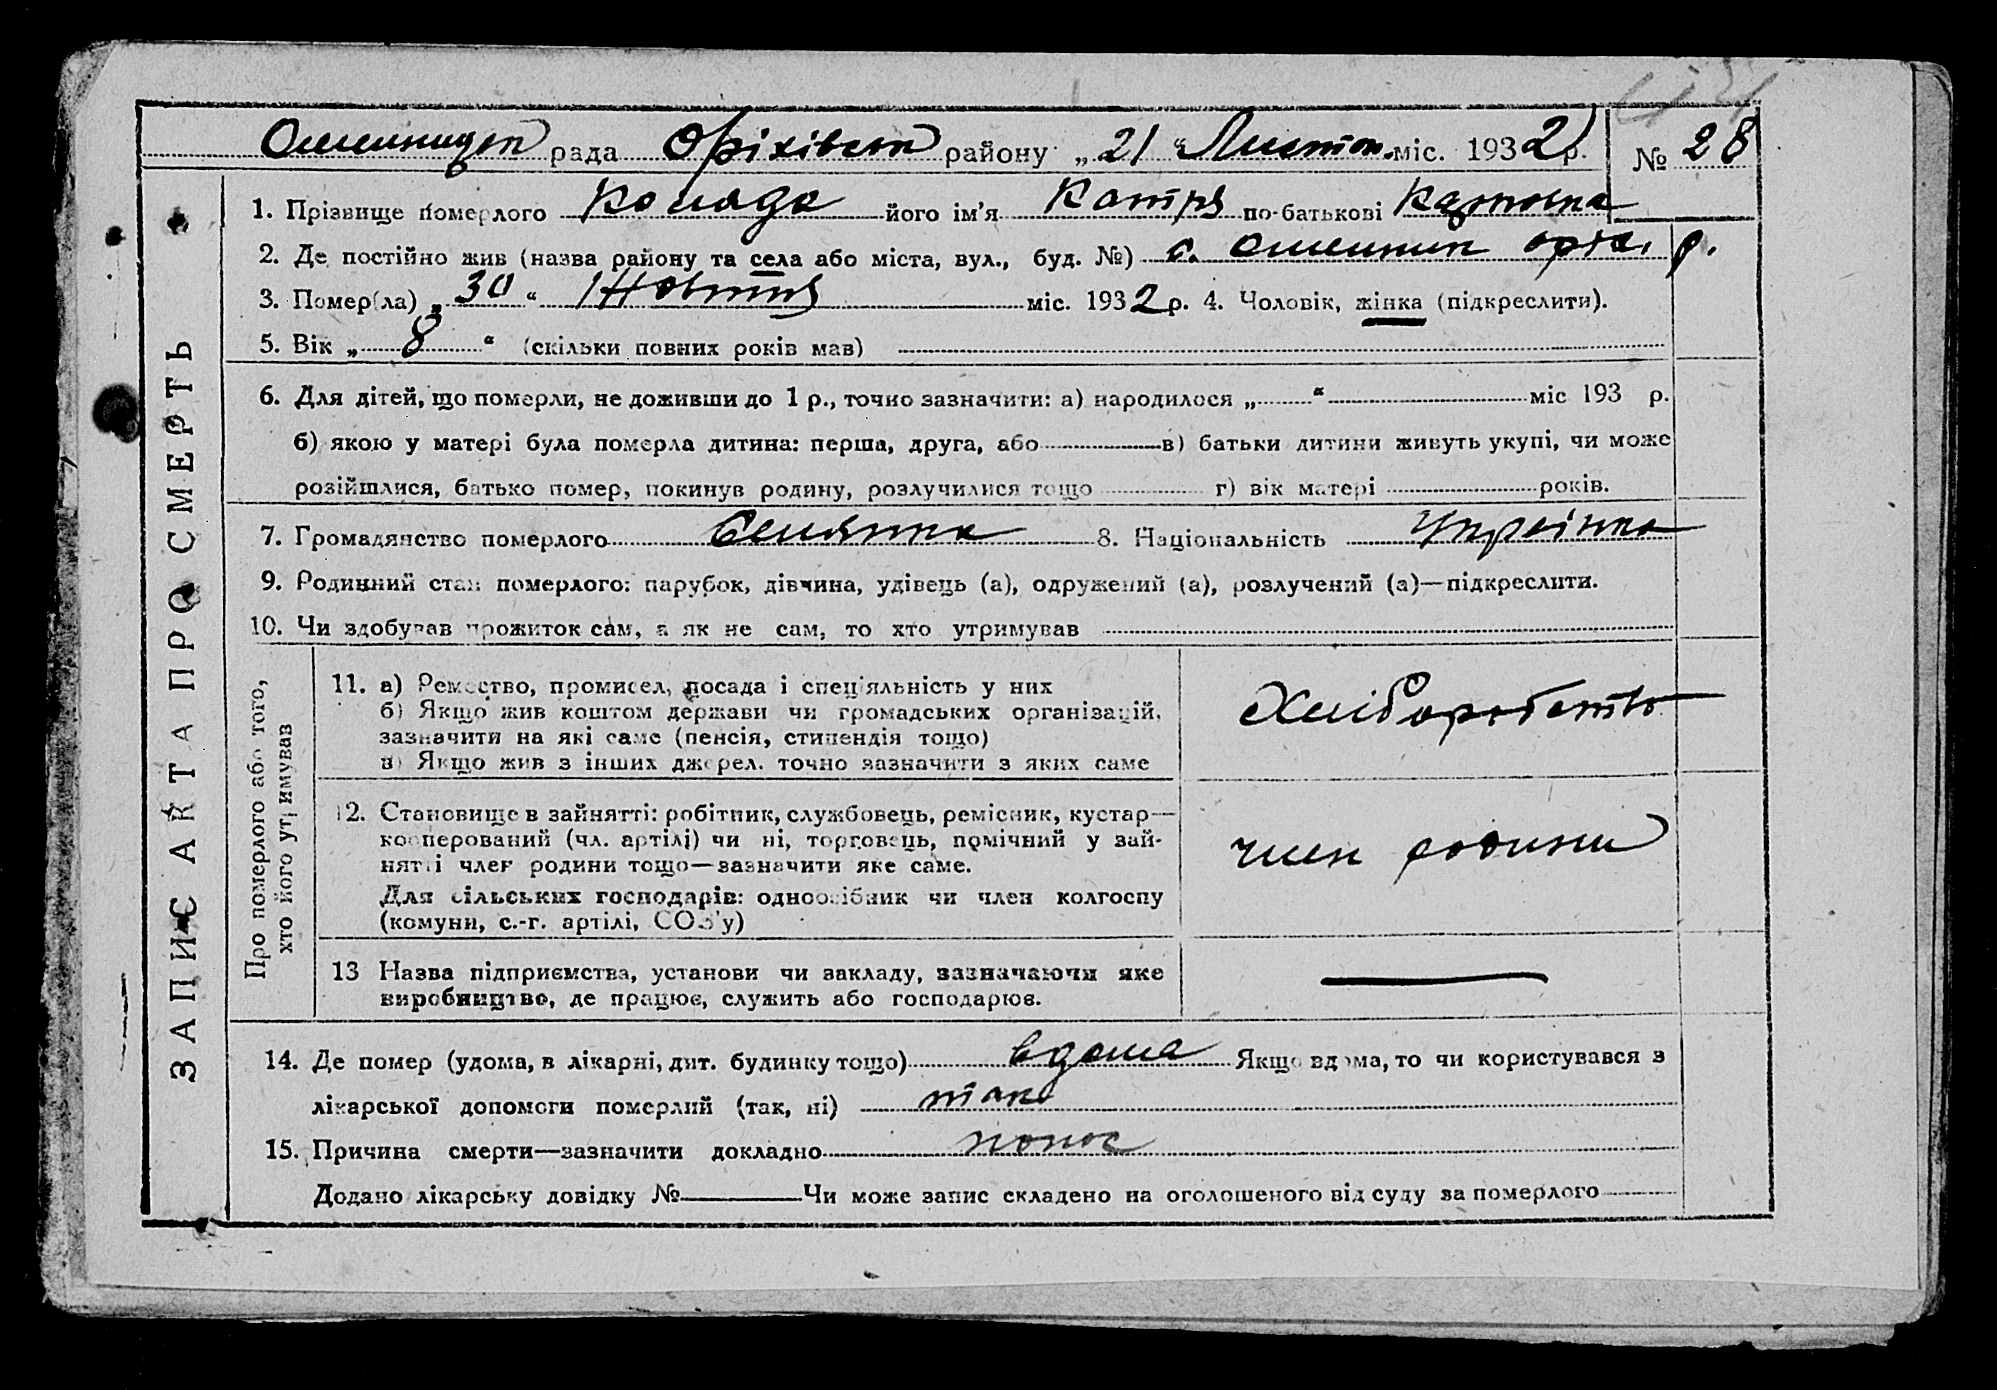 рада Оріхівськ району „21“ Листоп. міс. 1932 р. № 28
1. Прізвище померлого Коляда його ім'я Катря по-батькові
2. Де постійно жив (назва району та села або міста, вул., буд. №) с. оріх. р.
3. Помер(ла) „30“ Жовтня міс. 1932 р. 4. Чоловік, жінка (підкреслити).
5. Вік „8“ (скільки повних років мав)
6. Для дітей, що померли, не доживши до 1 р., точно зазначити: а) народилося „ “ міс 193 р.
б) якою у матері була померла дитина: перша, друга, або в) батьки дитини живуть укупі, чи може
розійшлися, батько помер, покинув родину, розлучилися тощо г) вік матері років.
7. Громадянство померлого Селянка 8. Національність Українка
9. Родинний стан померлого: парубок, дівчина, удівець (а), одружений (а), розлучений (а)—підкреслити.
10. Чи здобував прожиток сам, а як не сам, то хто утримував
ЗАПИС АКТА ПРО СМЕРТЬ
Про померлого або того,
хто його утримував
11. а) Ремество, промисел, посада і спец'яльність у них
б) Якщо жив коштом держави чи громадських організацій,
зазначити на які саме (пенсія, стипендія тощо)
в) Якщо жив з інших джерел. точно зазначити з яких саме
Хліборобство
12. Становище в зайнятті: робітник, службовець, ремісник, кустар—
кооперований (чл. артілі) чи ні, торговець, помічний у зай-
нятті член родини тощо—зазначити яке саме.
Для сільських господарів: одноосібник чи член колгоспу
(комуни, с.-г. артілі, СОЗ'у)
член родини
13 Назва підприємства, установи чи закладу, зазначаючи яке
виробництво, де працює, служить або господарює.
14. Де помер (удома, в лікарні, дит. будинку тощо) вдома Якщо вдома, то чи користувався з
лікарської допомоги померлий (так, ні) так
15. Причина смерти—зазначити докладно понос
Додано лікарську довідку № Чи може запис складено на оголошеного від суду за померлого